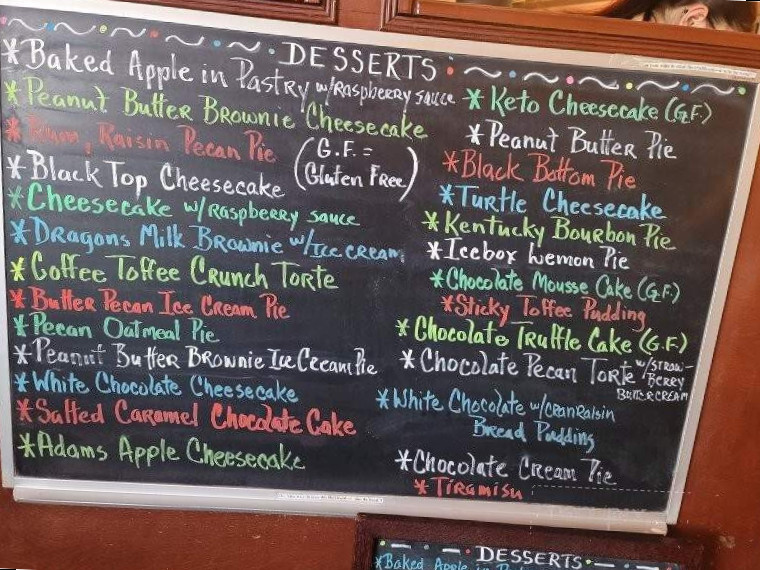 DESSERTS
*Baked Apple in Pastry w/Raspberry sauce
*Peanut Butter Brownie Cheesecake
*Rum, Raisin Pecan Pie
(G.F. =
Gluten Free)
*Black Top Cheesecake
*Cheesecake w/Raspberry sauce
*Dragons Milk Brownie w/Ice cream
*Coffee Toffee Crunch Torte
*Butter Pecan Ice Cream Pie
*Pecan Oatmeal Pie
*Peanut Butter Brownie Ice Cream Pie
*White Chocolate Cheesecake
*Salted Caramel Chocolate Cake
*Adams Apple Cheesecake
*Keto Cheesecake (G.F.)
*Peanut Butter Pie
*Black Bottom Pie
*Turtle Cheesecake
*Kentucky Bourbon Pie
*Icebox Lemon Pie
*Chocolate Mousse Cake (G.F.)
*Sticky Toffee Pudding
*Chocolate Truffle Cake (G.F.)
*Chocolate Pecan Torte w/STRAW-
BERRY
BUTTERCREAM
*White Chocolate w/CranRaisin
Bread Pudding
*Chocolate Cream Pie
*Tiramisu
DESSERTS
*Baked Apple in